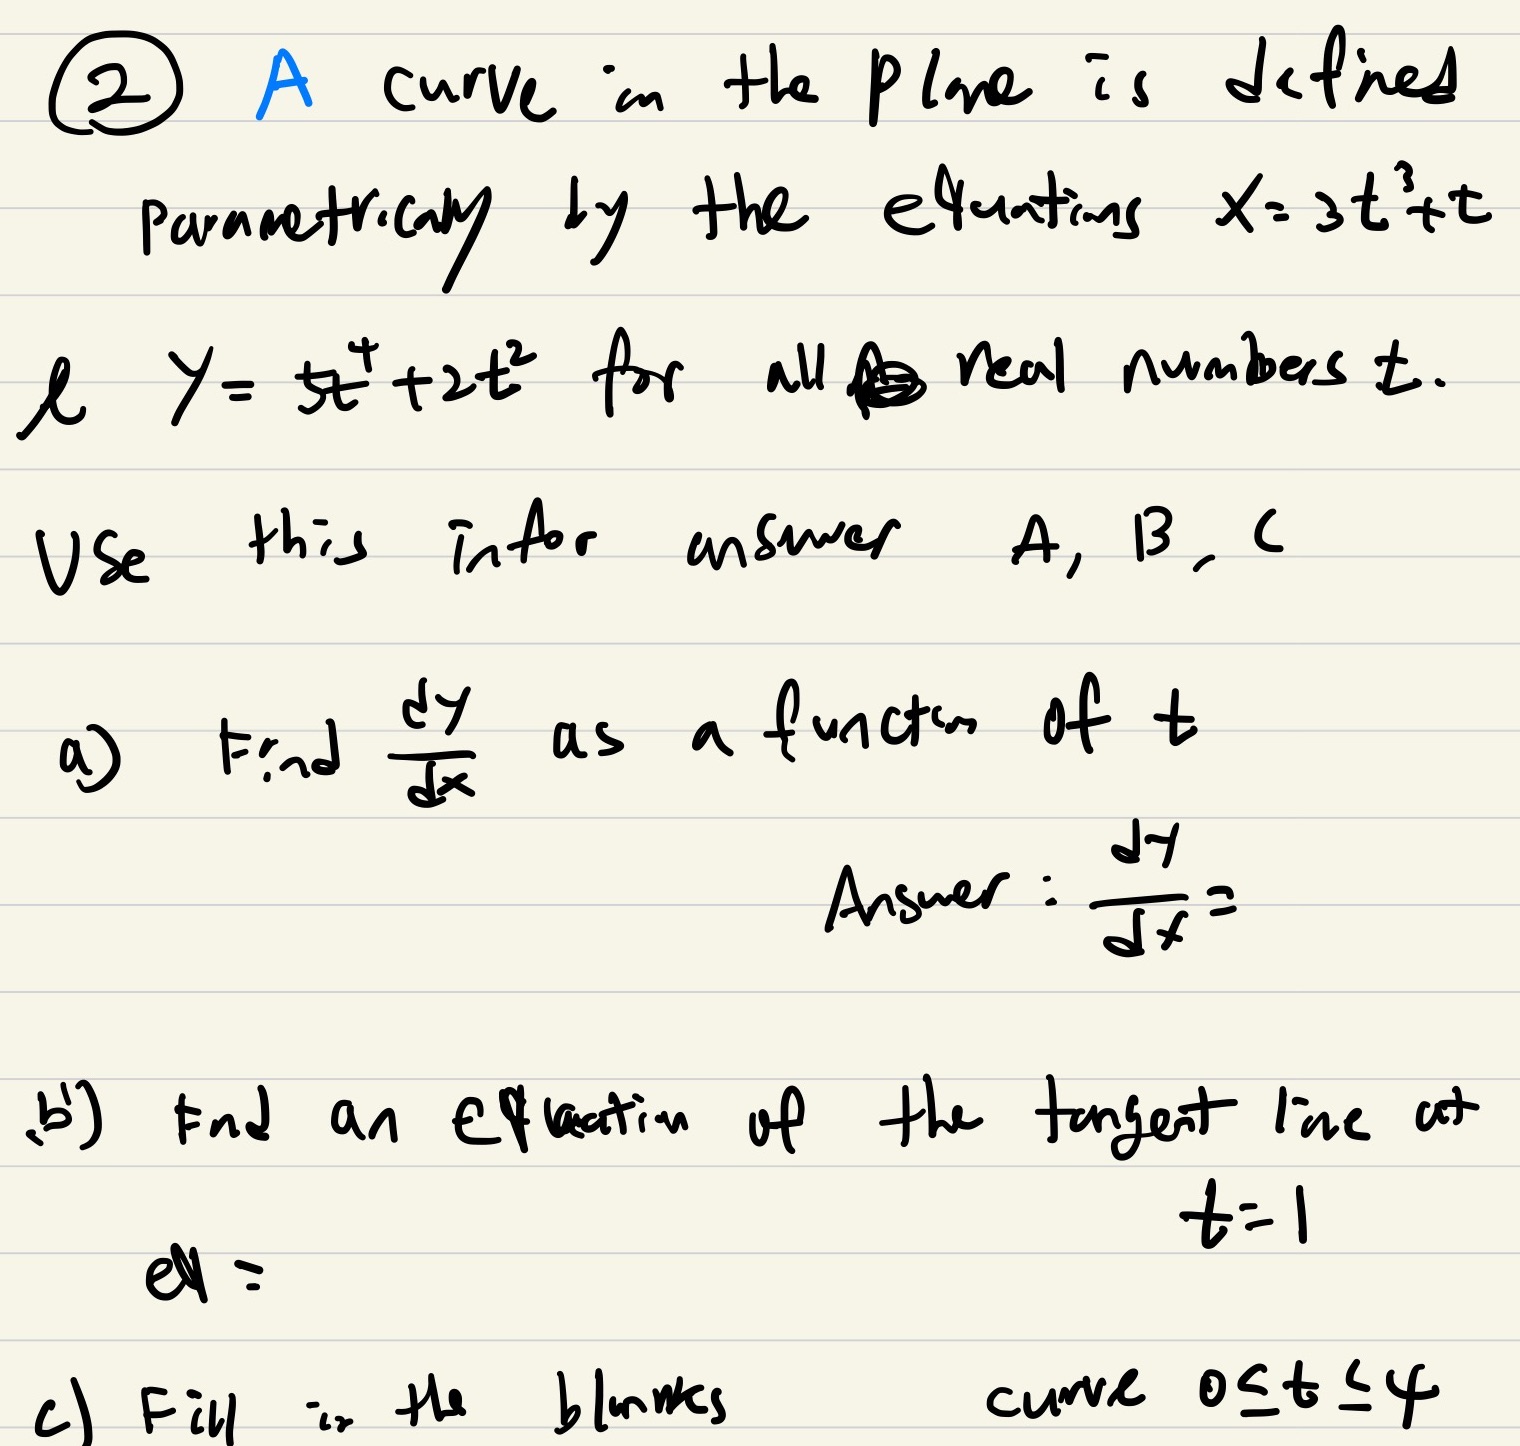 ② A curve in the plane is defined
parametrically by the equations x = 3t³+t
& y = 5t⁴ + 2t² for all real numbers t.
Use this infor answer A, B, C
a) Find dy/dx as a function of t
Answer : dy/dx =
b) Find an equation of the tangent line at
t = 1
eq =
c) Fill in the blanks curve 0 ≤ t ≤ 4